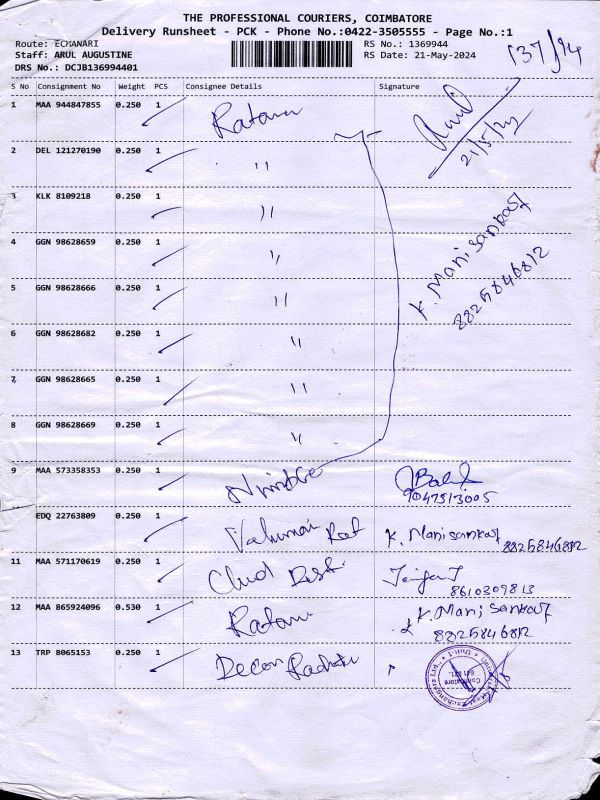 THE PROFESSIONAL COURIERS, COIMBATORE
Delivery Runsheet - PCK - Phone No.:0422-3505555 - Page No.:1
Route: ECHANARI
Staff: ARUL AUGUSTINE
DRS No.: DCJB136994401
RS No.: 1369944
RS Date: 21-May-2024
137/94
S No Consignment No Weight PCS Consignee Details Signature
1 MAA 944847855 0.250 1
21/5/24
2 DEL 121270190 0.250 1 "
3 KLK 8109218 0.250 1 "
4 GGN 98628659 0.250 1 "
K. Manisankar
8825846812
5 GGN 98628666 0.250 1 "
6 GGN 98628682 0.250 1 "
7 GGN 98628665 0.250 1 "
8 GGN 98628669 0.250 1 "
9 MAA 573358353 0.250 1
9047513005
EDQ 22763809 0.250 1 K. Manisankar
8825846812
11 MAA 571170619 0.250 1
8610309813
12 MAA 865924096 0.530 1 K. Manisankar
8825846812
13 TRP 8065153 0.250 1